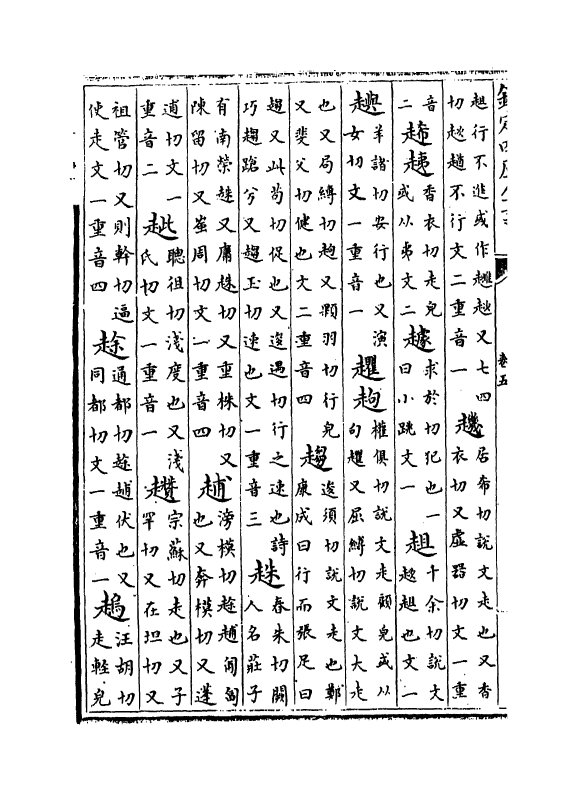 卷五
趄行不進或作䟃趑又七四
切趑趙不行文二重音一
居希切說文走也又香
衣切又虛器切文一重
音
二
香衣切走皃
或从弗文二
求於切犯也一
曰小跳文一
趄
千余切說文
趑趄也文一
羊諸切安行也又演
女切文一重音一
權俱切說文走顧皃或从
又屈縛切說文大走
也又局縛切又顆羽切行皃
又斐父切健也文二重音四
趨
逡須切說文走也鄭
康成曰行而張足曰
趨又此苟切促也又逡遇切行之速也詩
巧趨蹌兮又趨玉切速也文一重音三
趎
春朱切闕
人名莊子
有南榮趎又庸趎切又重株切又
陳留切又崟周切文一重音四
滂模切匍匐
也又奔模切又蓬
逋切文一
重音二
聰徂切淺度也又淺
氏切文一重音一
趲
宗蘇切走也又子
罕切又在坦切又
祖管切又則幹切逼
使走文一重音四
通都切伏也又
同都切文一重音一
汪胡切
走輕皃